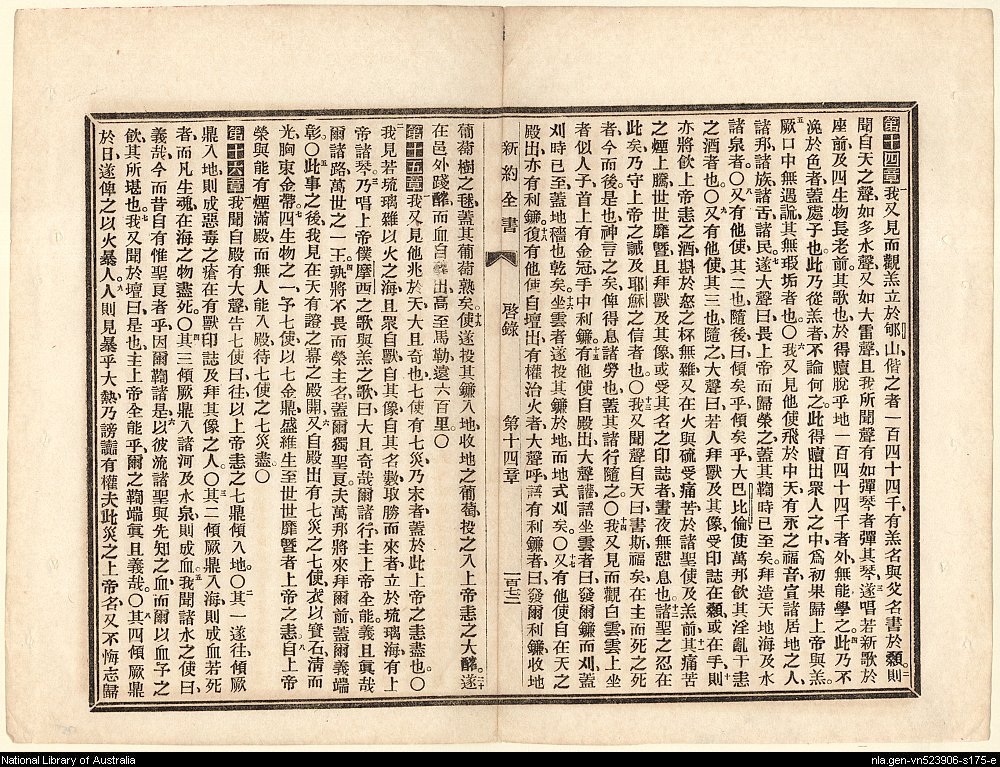 第十四章我又見而觀羔立於郇山偕之者一百四十四千有羔名與父名書於顙二則
聞自天之聲如多水聲又如大雷聲且我所聞聲有如彈琴者彈其琴三遂唱若新歌於
座前及四生物長老前其歌也於得贖脫乎地一百四十四千者外無能學之四此乃不
浼於色者蓋處子也此乃從羔者不論何之此得贖出眾人之中為初果歸上帝與羔
五厥口中無遇詭其無瑕垢者也〇六我又見他使飛於中天有永之福音宣諸居地之人
諸邦諸族諸舌諸民七遂大聲曰畏上帝而歸榮之蓋其鞫時已至矣拜造天地海及水
諸泉者〇八又有他使其二也隨後曰傾矣乎傾矣乎大巴比倫使萬邦飲其淫亂干恚
之酒者也〇九又有他使其三也隨之大聲曰若人拜獸及其像受印誌在顙或在手十則
亦將飲上帝恚之酒斟於怒之杯無雜又在火與硫受痛苦於諸聖使及羔前十一其痛苦
之煙上騰世世靡曁且拜獸及其像或受其名之印誌者晝夜無憩息也十二諸聖之忍在
此矣乃守上帝之誡及耶穌之信者也〇十三我又聞聲自天曰書斯福矣在主而死之死
者今而後是也神言之矣俾得息諸勞也蓋其諸行隨之〇十四我又見而觀白雲雲上坐
者似人子首上有金冠手中利鐮十五有他使自殿出大聲謂坐雲者曰發爾鐮而刈蓋
刈時已至蓋地穡也乾矣十六坐雲者遂投其鐮於地而地式刈矣〇十七又有他使自在天之
殿出亦有利鐮十八復有他使自壇出有權治火者大聲呼謂有利鐮者曰發爾利鐮收地
新約全書 啓錄 第十四章 一百七三
葡萄樹之毬蓋其葡萄熟矣十九使遂投其鐮入地收地之葡萄投之入上帝恚之大醡二十遂
在邑外踐醡而血自醡出高至馬勒遠六百里〇
第十五章我又見他兆於天大且奇也七使有七災乃末者蓋於此上帝之恚盡也〇
二我見若琉璃海雜以火之海且眾自獸自其像自其名數取勝而來者立於琉璃海有上
帝諸琴三乃唱上帝僕摩西之歌與羔之歌曰大且奇哉爾諸行主上帝全能義且眞哉
爾諸路萬世之王四孰將不畏而榮主名蓋爾獨聖夏夫萬邦將來拜爾前蓋爾義端
彰〇五此事之後我見在天有證之幕之殿開六又自殿出有七災之七使衣以寶石淸而
光胸束金帶七四生物之一予七使以七金鼎盛維生至世世靡曁者上帝之恚八自上帝
榮與能有煙滿殿而無人能入殿待七使之七災盡〇
第十六章我聞自殿有大聲告七使曰往以上帝恚之七鼎傾入地〇二其一遂往傾厥
鼎入地則成惡毒之瘡在有獸印誌及拜其像之人〇三其二傾厥鼎入海則成血若死
者而凡生魂在海之物盡死〇四其三傾厥鼎入諸河及水泉則成血五我聞諸水之使曰
義哉今而昔自有惟聖夏者乎因爾鞫諸是六以彼流諸聖與先知之血而爾以血予之
飲其所堪也七我又聞於壇曰是也主上帝全能乎爾之鞫端眞且義哉〇八其四傾厥鼎
於日遂俾之以火暴人九人則見暴乎大熱乃謗讟有權夫此災之上帝名又不悔志歸
National Library of Australia
nla.gen-vn523906-s175-e